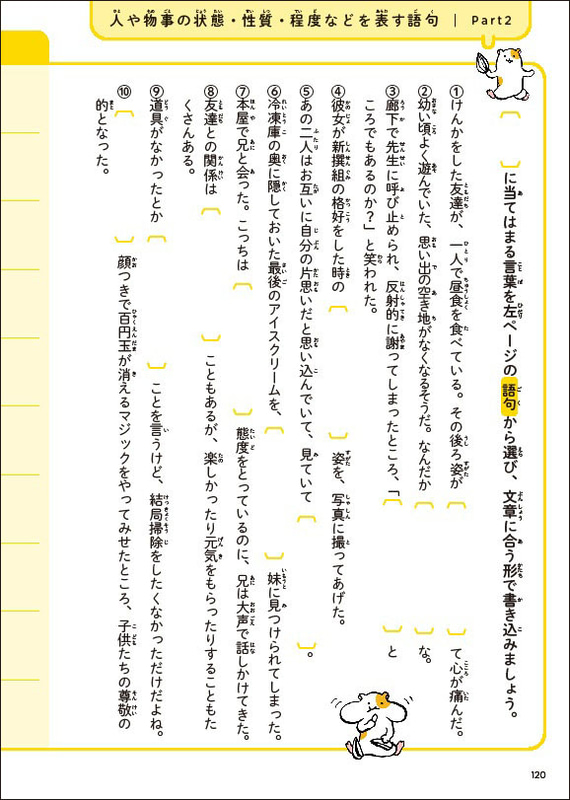 人や物事の状態・性質・程度などを表す語句 | Part2
〔　　〕に当てはまる言葉を左ページの語句から選び、文章に合う形で書き込みましょう。
①けんかをした友達が、一人で昼食を食べている。その後ろ姿が〔　　〕て心が痛んだ。
②幼い頃よく遊んでいた、思い出の空き地がなくなるそうだ。なんだか〔　　〕な。
③廊下で先生に呼び止められ、反射的に謝ってしまったところ、「〔　　〕と
ころでもあるのか？」と笑われた。
④彼女が新撰組の格好をした時の〔　　〕姿を、写真に撮ってあげた。
⑤あの二人はお互いに自分の片思いだと思い込んでいて、見ていて〔　　〕。
⑥冷凍庫の奥に隠しておいた最後のアイスクリームを、〔　　〕妹に見つけられてしまった。
⑦本屋で兄と会った。こっちは〔　　〕態度をとっているのに、兄は大声で話しかけてきた。
⑧友達との関係は〔　　〕こともあるが、楽しかったり元気をもらったりすることもた
くさんある。
⑨道具がなかったとか〔　　〕ことを言うけど、結局掃除をしたくなかっただけだよね。
⑩〔　　〕顔つきで百円玉が消えるマジックをやってみせたところ、子供たちの尊敬の
的となった。
120